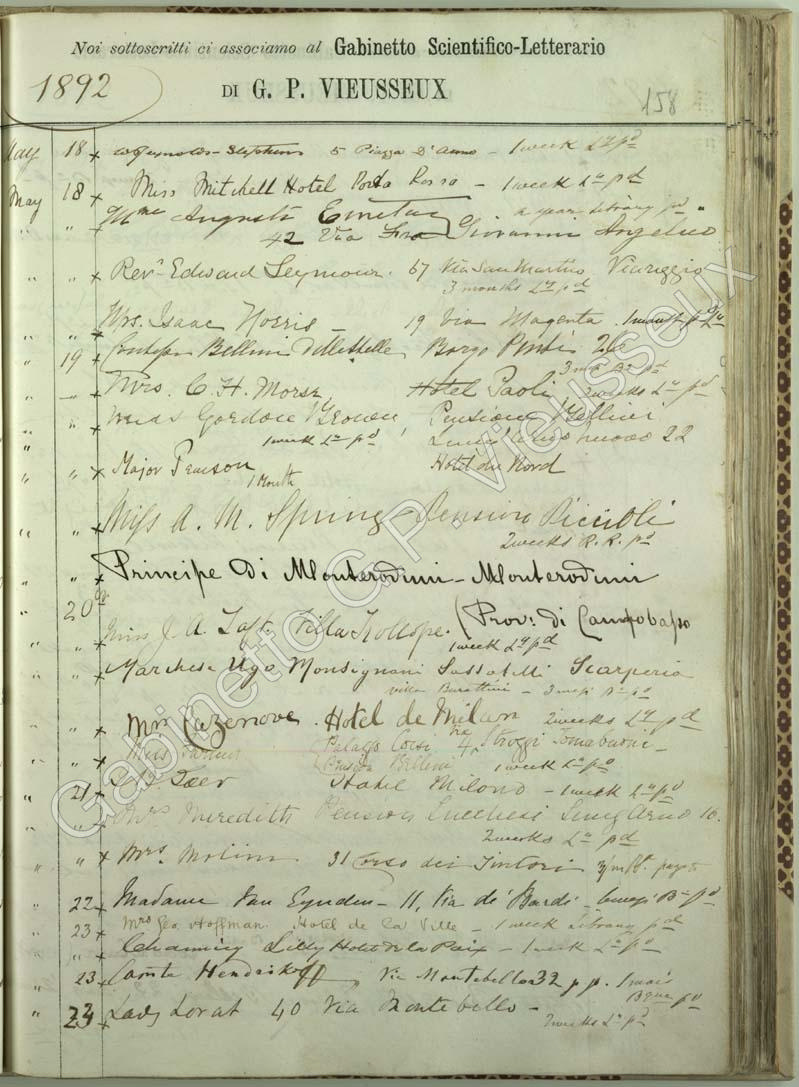 Noi sottoscritti ci associamo al Gabinetto Scientifico-Letterario
1892 DI G. P. VIEUSSEUX 158
May 18 x Stephens 5 Piazza D'Arno - 1 week Ly pd
May 18 x Miss Mitchell Hotel Porta Rossa - 1 week Ly pd
" " Mme Augusta a year Library pd
42 Via Fra Giovanni Angelico
" " x Revd Edward Seymour. 67 Via San Martino Viareggio
3 months Ly pd
" " Mrs. Isaac Norris - 19 Via Magenta 1 month pd
" 19 x Contessa Bellini Delle Stelle Borgo Pinti 26
3 mo pd
" - x Mrs. C. H. Morse Hotel Paoli 2 weeks Ly pd
" " x Gordon Brown Pensione Bellini
1 week Ly pd Lung'arno nuovo 22
" " x Major Pearson Hotel du Nord
1 Month
" " x Miss A. M. Spring Pension Piccioli
2 weeks R. R. pd
" " x Principe di Monterodimi - Monterodimi
20 (Prov: di Campobasso
" " x Miss J. A. Taft. Villa Trollope.
1 week Ly pd
" " x Marchese Ugo Monsignani Sassatelli Scarperia
villa - 3 mesi pd
" " x Mrs Cazenove. Hotel de Milan 2 weeks Ly pd
Miss Palazzo Corsi 4, Via Strozzi Tornabuoni -
Pension Bellini 1 week Ly pd
" 21 x Hotel Milano - 1 week Ly pd
" " x Mrs Meredith Pension Lucchesi Lung Arno 16.
2 weeks Ly pd
" " x Mrs. Molini 31 Corso dei Tintori
" 22 x Madame Van Eynden - 11, Via de' Bardi - pd
" 23 x Mrs Geo. Hoffman. Hotel de la Ville - 1 week Library pd
x Channing Lilly Hotel de la Paix - 1 week Ly pd
" 23 x Comte Hendrikoff, Via Montebello 32 p p. 1 mois
pd
" 23 x Lady Lovat 40 Via Montebello -
2 weeks Ly pd
Gabinetto G. P. Vieusseux